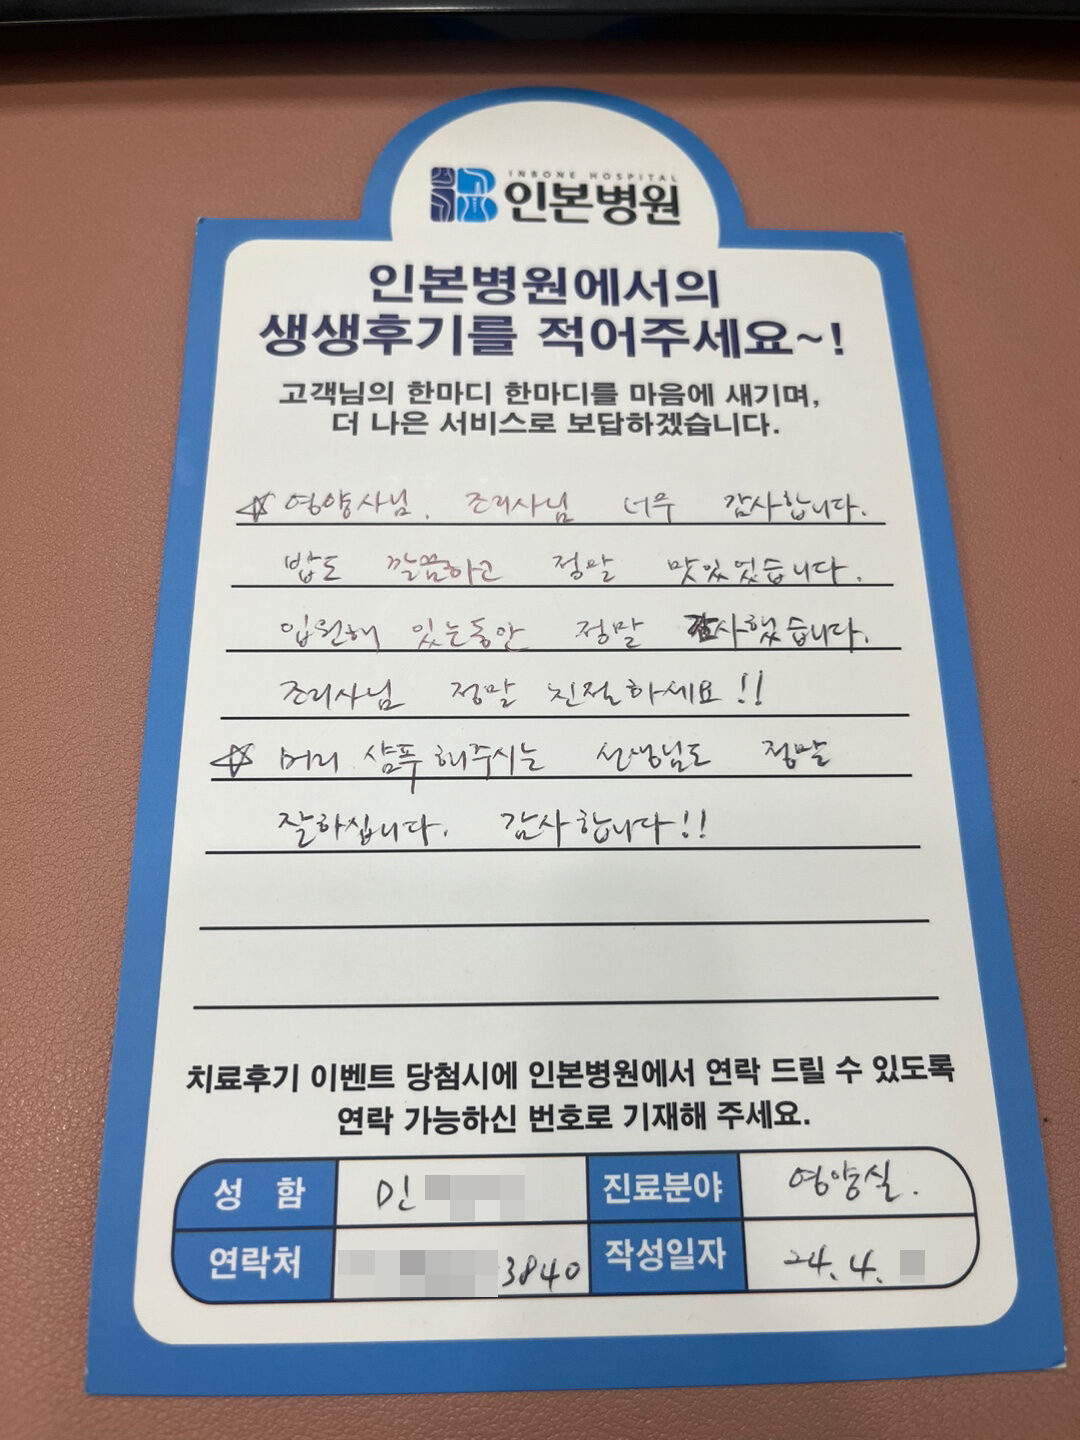 INBONE HOSPITAL
인본병원
인본병원에서의
생생후기를 적어주세요~!
고객님의 한마디 한마디를 마음에 새기며,
더 나은 서비스로 보답하겠습니다.
☆ 영양사님. 조리사님 너무 감사합니다.
밥도 깔끔하고 정말 맛있었습니다.
입원해 있는동안 정말 감사했습니다.
조리사님 정말 친절하세요!!
☆ 머리 샴푸 해주시는 선생님도 정말
잘하십니다. 감사합니다!!
치료후기 이벤트 당첨시에 인본병원에서 연락 드릴 수 있도록
연락 가능하신 번호로 기재해 주세요.
성 함 민 진료분야 영양실.
연락처 3840 작성일자 24.4.